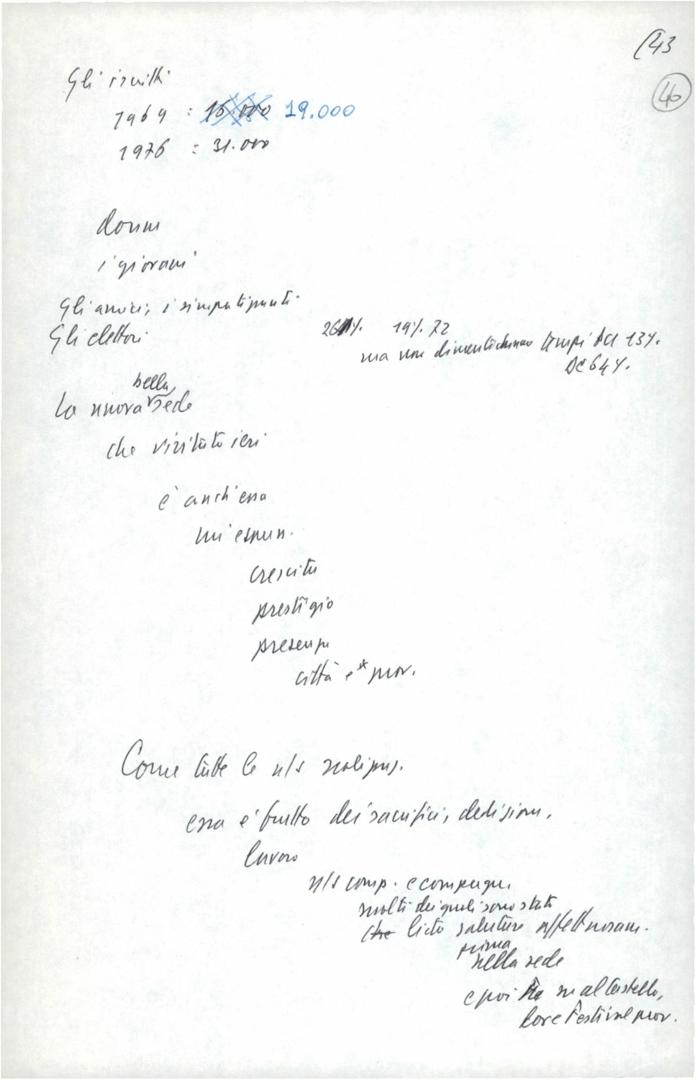 (43
46
Gli iscritti
1969 : 15.000 19.000
1976 : 31.000
donne
i giovani
Gli amici, i simpatizzanti
Gli elettori 26%. 19%. 72
ma non dimentichiamo tempi PCI 13%.
DC 64%.
bella
La nuova sede
che visitato ieri
è anch'essa
un'espress.
crescita
prestigio
presenza
città e prov.
Come tutte le n/s
essa è frutto dei sacrifici, dedizione,
lavoro
n/s comp. e compagne,
molti dei quali sono stati
che lieto salutare affettuosam.
prima
nella sede
e poi su al Castello,
loro Festival prov.